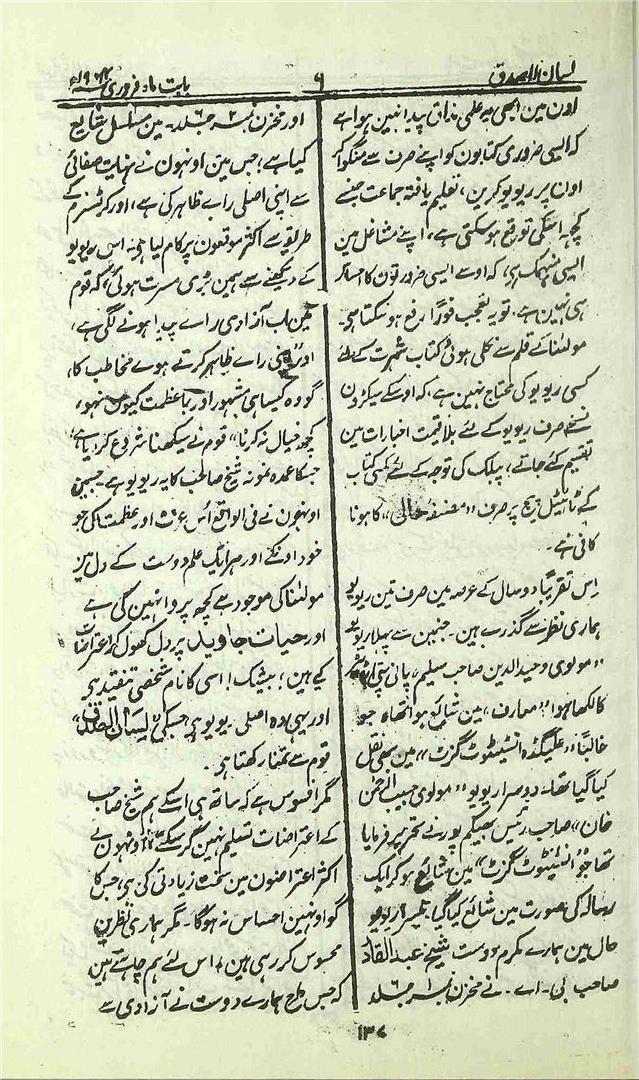 لسان الصدق
۶
بابت ماہ فروری
اون مین ابھی یہ علمی مذاق پیدا نہین ہوا ہے
کہ ایسی ضروری کتابون کو اپنے صرف سے منگوا کر
اون پر ریویو کرین، تعلیم یافتہ جماعت جسے
کچھ اسکی توقع ہو سکتی ہے، اپنے مشاغل مین
ایسی منہمک ہی، کہ اوسے ایسی ضرورتون کا احساس
ہی نہین ہے. تو یہ تعجب فوراً رفع ہو سکتا ہی.
مولنٰا کے قلم سے نکلی ہوئی کتاب شہرت کے لئے
کسی ریویو کی محتاج نہین ہے، کہ اوسکے سیکڑون
نسخے صرف ریویو کے لئے بلا قیمت اخبارات مین
تقسیم کئے جاتے، پبلک کی توجہ کے لئے کسی کتاب
کے ٹائیٹل پیج پر صرف "مصنفہ حالی" کا ہونا
کافی ہے.
اس تقریباً دو سال کے عرصہ مین صرف تین ریویو
ہماری نظر سے گذرے ہین. جنمین سے پہلا ریویو
"مولوی وحید الدین صاحب سلیم، پانی پتی
کا لکھا ہوا "معارف، مین شائع ہوا تھا، جو
غالباً "علیگڈہ انسٹیٹوٹ گزٹ" مین بھی نقل
کیا گیا تھا. دوسرا ریویو "مولوی حبیب الرحمن
خان" صاحب رئیس بھیکم پور نے تحریر فرمایا
تھا جو "انسٹیٹوٹ گزٹ" مین شائع ہو کر ایک
رسالہ کی صورت مین شائع کیا گیا. تیسرا ریویو
حال مین ہمارے مکرم دوست شیخ عبد القادر
صاحب بی-اے- نے مخزن نمبر ۱ جلد ۶
اور مخزن نمبر ۲ جلد ۶- مین مسلسل شایع
کیا ہے؛ جس مین اونہون نے نہایت صفائی
سے اپنی اصلی رائے ظاہر کی ہے، اور کرٹسزم کے
طریقہ سے اکثر موقعون پر کام لیا ہی. اس ریویو
کے دیکھنے سے ہمین بڑی مسرت ہوئی، کہ قوم
مین اب آزادی رائے پیدا ہونے لگی ہے،
اور اپنی رائے ظاہر کرتے ہوے مخاطب کا،
گو وہ کیسا ہی مشہور اور با عظمت کیون نہو،
کچھ خیال نہ کرنا" قوم نے سیکھنا شروع کر دیا ہے،
جسکا عمدہ نمونہ شیخ صاحب کا یہ ریویو ہے. جسمین
اونہون نے فی الواقع اُس عزت اور عظمت کی جو
خود اونکے اور ہر ایک علم دوست کے دل مین
مولنٰا کی موجود ہے کچھ پروا نہین کی ہے
اور حیات جاوید پر دل کھول کر اعتراضات
کیے ہین؛ بیشک! اسی کا نام شخصی تنقید ہی
اور یہی وہ اصلی ریویو ہی جسکی "لسان الصدق"
قوم سے تمنا رکھتا ہی.
مگر افسوس ہے کہ ساتھ ہی اسکے ہم شیخ صاحب
کے اعتراضات تسلیم نہین کر سکتے. اونہون نے
اکثر اعتراضون مین سخت زیادتی کی ہی، جسکا
گو اونہین احساس نہ ہوگا. مگر ہماری نظرین
محسوس کر رہی ہین، اس لئے ہم چاہتے ہین
کہ جس طرح ہمارے دوست نے آزادی سے
۱۳۷